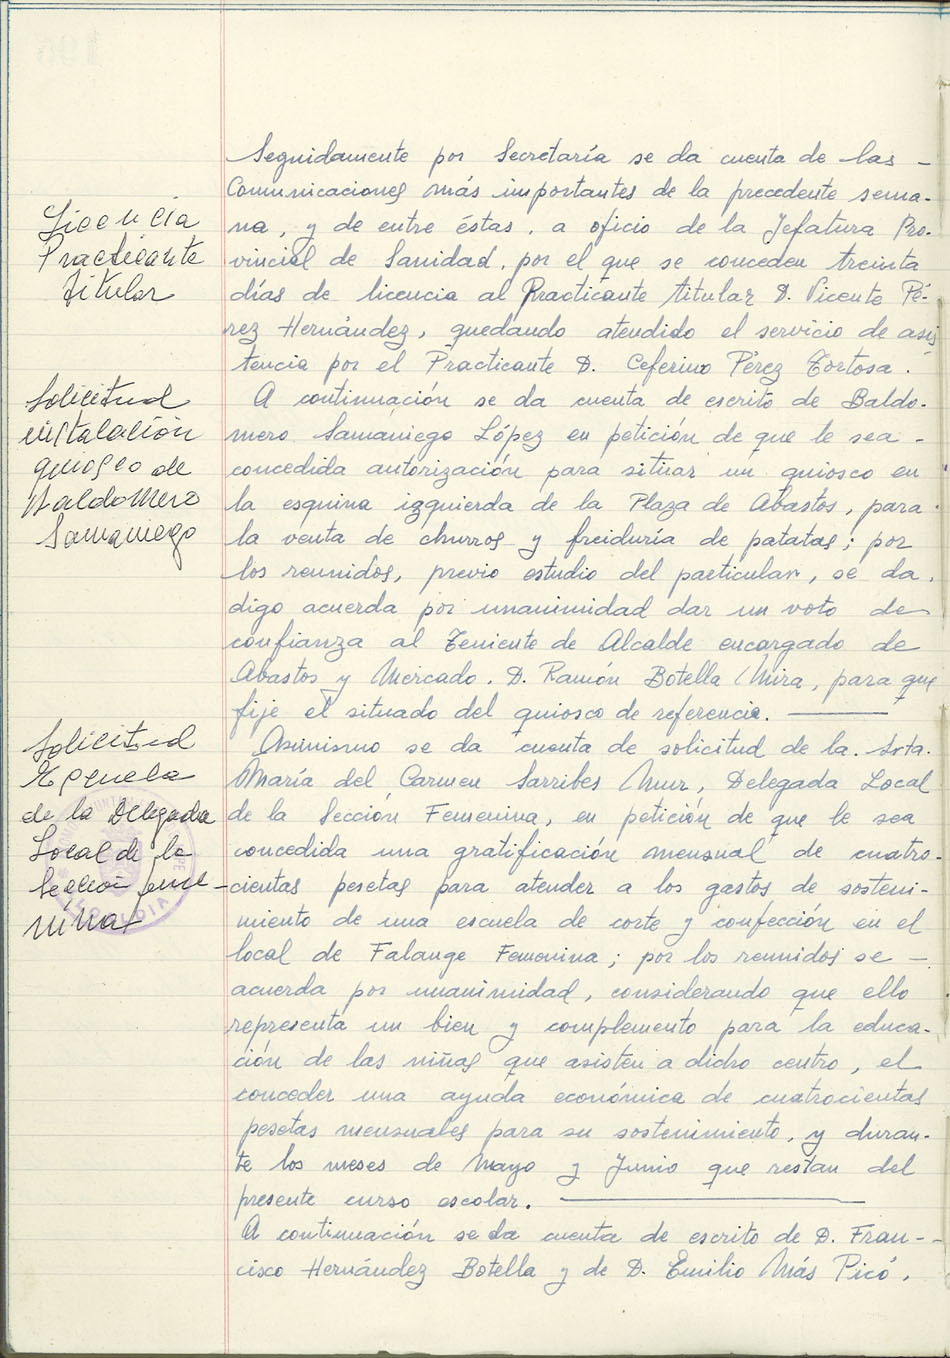 Seguidamente por Secretaría se da cuenta de las -
Comunicaciones más importantes de la precedente sema-
na, y de entre éstas, a oficio de la Jefatura Pro-
vincial de Sanidad, por el que se conceden treinta
días de licencia al Practicante titular D. Vicente Pé-
rez Hernández, quedando atendido el servicio de asis
tencia por el Practicante D. Ceferino Pérez Tortosa.
A continuación se da cuenta de escrito de Baldo-
mero Samaniego López en petición de que le sea -
concedida autorización para situar un quiosco en
la esquina izquierda de la Plaza de Abastos, para
la venta de churros y freiduria de patatas; por
los reunidos, previo estudio del particular, se da,
digo acuerda por unanimidad dar un voto de
confianza al Teniente de Alcalde encargado de
Abastos y Mercado. D. Ramón Botella Mira, para que
fije el situado del quiosco de referencia.
Asimismo se da cuenta de solicitud de la. Srta.
María del Carmen Sarribes Mur, Delegada Local
de la Sección Femenina, en petición de que le sea
concedida una gratificación mensual de cuatro-
cientas pesetas para atender a los gastos de sosteni-
miento de una escuela de corte y confección en el
local de Falange Femenina; por los reunidos se -
acuerda por unanimidad, considerando que ello
representa un bien y complemento para la educa-
ción de las niñas que asisten a dicho centro, el
conceder una ayuda económica de cuatrocientas
pesetas mensuales para su sostenimiento, y duran-
te los meses de Mayo y Junio que restan del
presente curso escolar.
A continuación se da cuenta de escrito de D. Fran-
cisco Hernández Botella y de D. Emilio Más Picó,
Licencia
Practicante
titular
Solicitud
instalación
quiosco de
Baldomero
Samaniego
Solicitud
Escuela
de la Delegada
Local de la
Sección feme-
nina
ALCALDIA